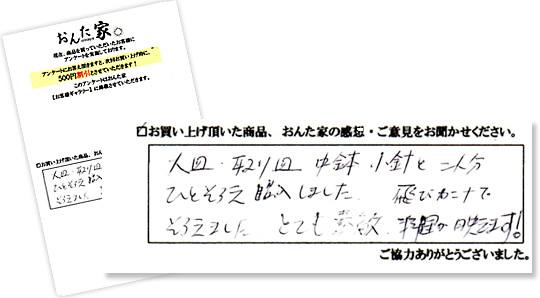 おんた家
現在、商品を買っていただいたお客様に
アンケートを実施しております。
アンケートにお答え頂きますと、次回お買い上げ時に、
500円割引とさせていただきます!
このアンケートはおんた家
【お客様ギャラリー】に掲載させていただきます。
□お買い上げ頂いた商品、おん
□お買い上げ頂いた商品、おんた家の感想・ご意見をお聞かせください。
取り皿 中鉢 小鉢と 二人分
ひとそろえ 購入しました 飛びカンナで
そろえました とても素敵 料理が映えます!
ご協力ありがとうございました。